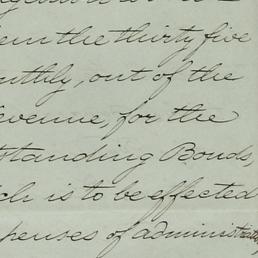 em the thirty five
nthly, out of the
evenue, for the
standing Bonds,
ch is to be effected
penses of administratio